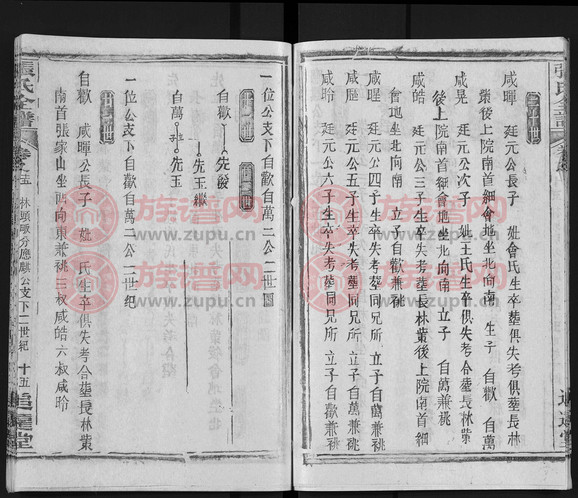 張氏全譜
咸暉 廷元公長子 妣會氏生卒塟俱失考俱塟長林
棠後上院南首細會地坐北向南 生子 自歡 自萬
咸晃 廷元公次子 妣王氏生卒俱失考塟長林棠
後上院南首細會地坐北向南 立子 自萬兼祧
咸皓 廷元公三子生卒失考塟長林棠後上院南首細
會地坐北向南 立子自歡兼祧
咸暒 廷元公四子生卒失考塟同兄所 立子自萬兼祧
咸 廷元公五子生卒失考塟同兄所 立子自萬兼祧
咸昤 廷元公六子生卒失考塟同兄所 立子自歡兼祧
追遠堂
一位公支下自歡自萬二公二世圖
自歡 先
先玉繼
自萬 先玉
一位公支下自歡自萬二公二世紀
自歡 咸暉公長子 妣 氏生卒俱失考合塟長林棠
南首張家山坐西向東兼祧三叔咸皓六叔咸昤
張氏全譜 卷之 五 林頭 分應麒公支下二世紀 十五 追遠堂
族谱网
www.zupu.cn
族谱网
www.zupu.cn
族谱网
www.zupu.cn
族谱网
www.zupu.cn